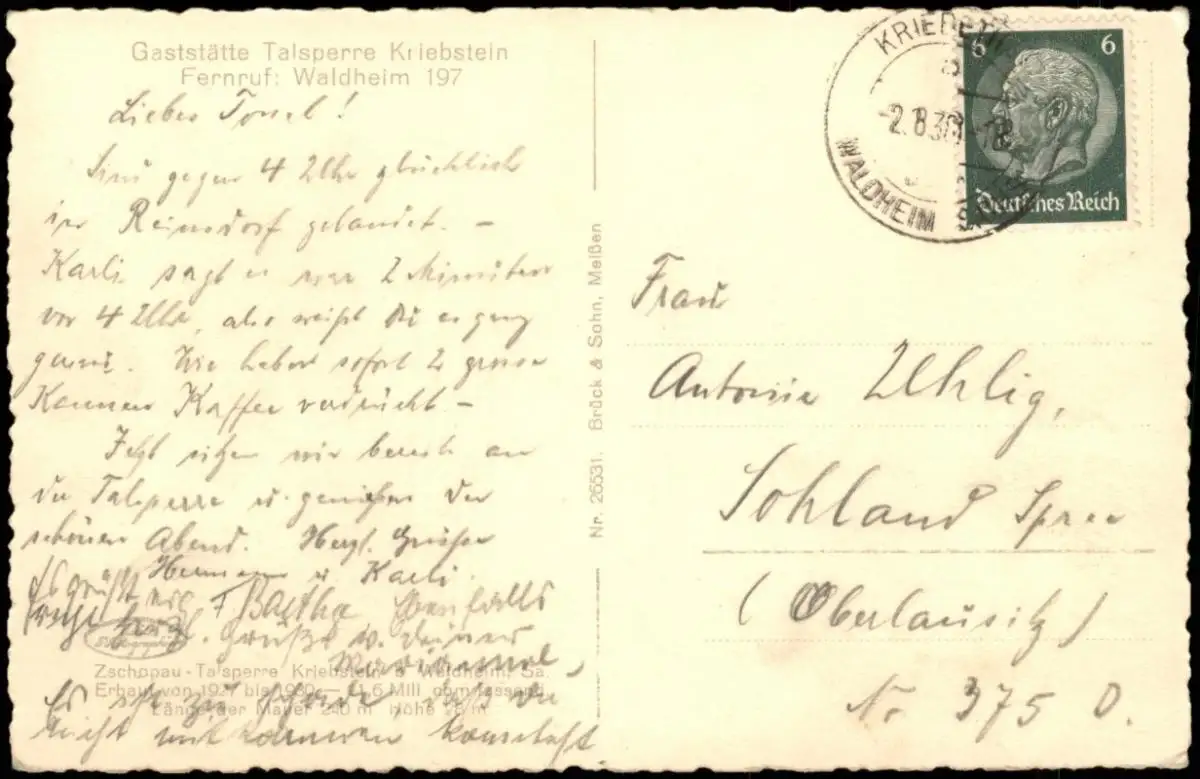 Gaststätte Talsperre Kriebstein
Fernruf: Waldheim 197
Liebes Tonel!
Sind gegen 4 Uhr glücklich
in Reinsdorf gelandet. –
Karli sagt es war 2 Minuten
vor 4 Uhr, also weißt Du es ganz
genau. Wir haben sofort 2 grosse
Kannen Kaffee verdrückt –
Jetzt sitzen wir bereits an
der Talsperre u. genießen den
schönen Abend. Herzl. Grüße
Hermann u. Karli.
Es grüßt
recht herzl. Bertha Ebenfalls
Grüße v. Deiner
Marianne,
Es ist zu schade, daß Du
nicht mitkommen konntest
Zschopau-Talsperre Kriebstein b. Waldheim, Sa.
Erbaut von 1927 bis 1930 – 11,6 Mill. cbm fassend
Länge der Mauer 240 m Höhe 28 m
Nr. 26531. Brück & Sohn, Meißen
KRIEBETH
-2.8.3 -18
WALDHEIM
6 6
Deutsches Reich
Frau
Antonie Uhlig,
Sohland Spree
(Oberlausitz)
Nr 375 D.